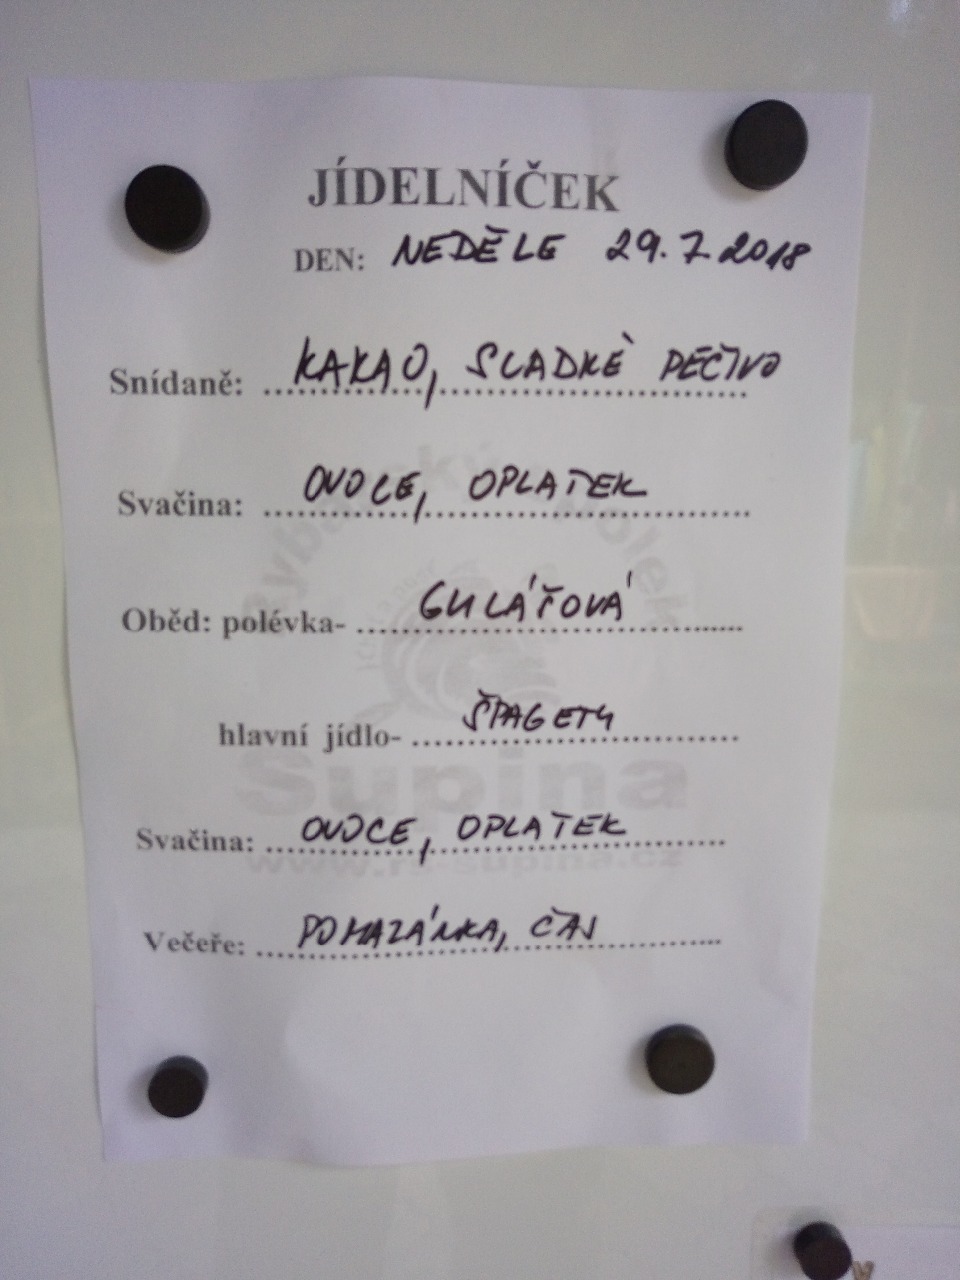 JÍDELNÍČEK
DEN: NEDĚLE 29.7.2018
Snídaně: KAKAO, SLADKÉ PEČIVO
Svačina: OVOCE, OPLATEK
Oběd: polévka- GULÁŠOVÁ
hlavní jídlo- ŠPAGETY
Svačina: OVOCE, OPLATEK
Večeře: POMAZÁNKA, ČAJ
Rybářský spolek
Šupina
www.rs-supina.cz